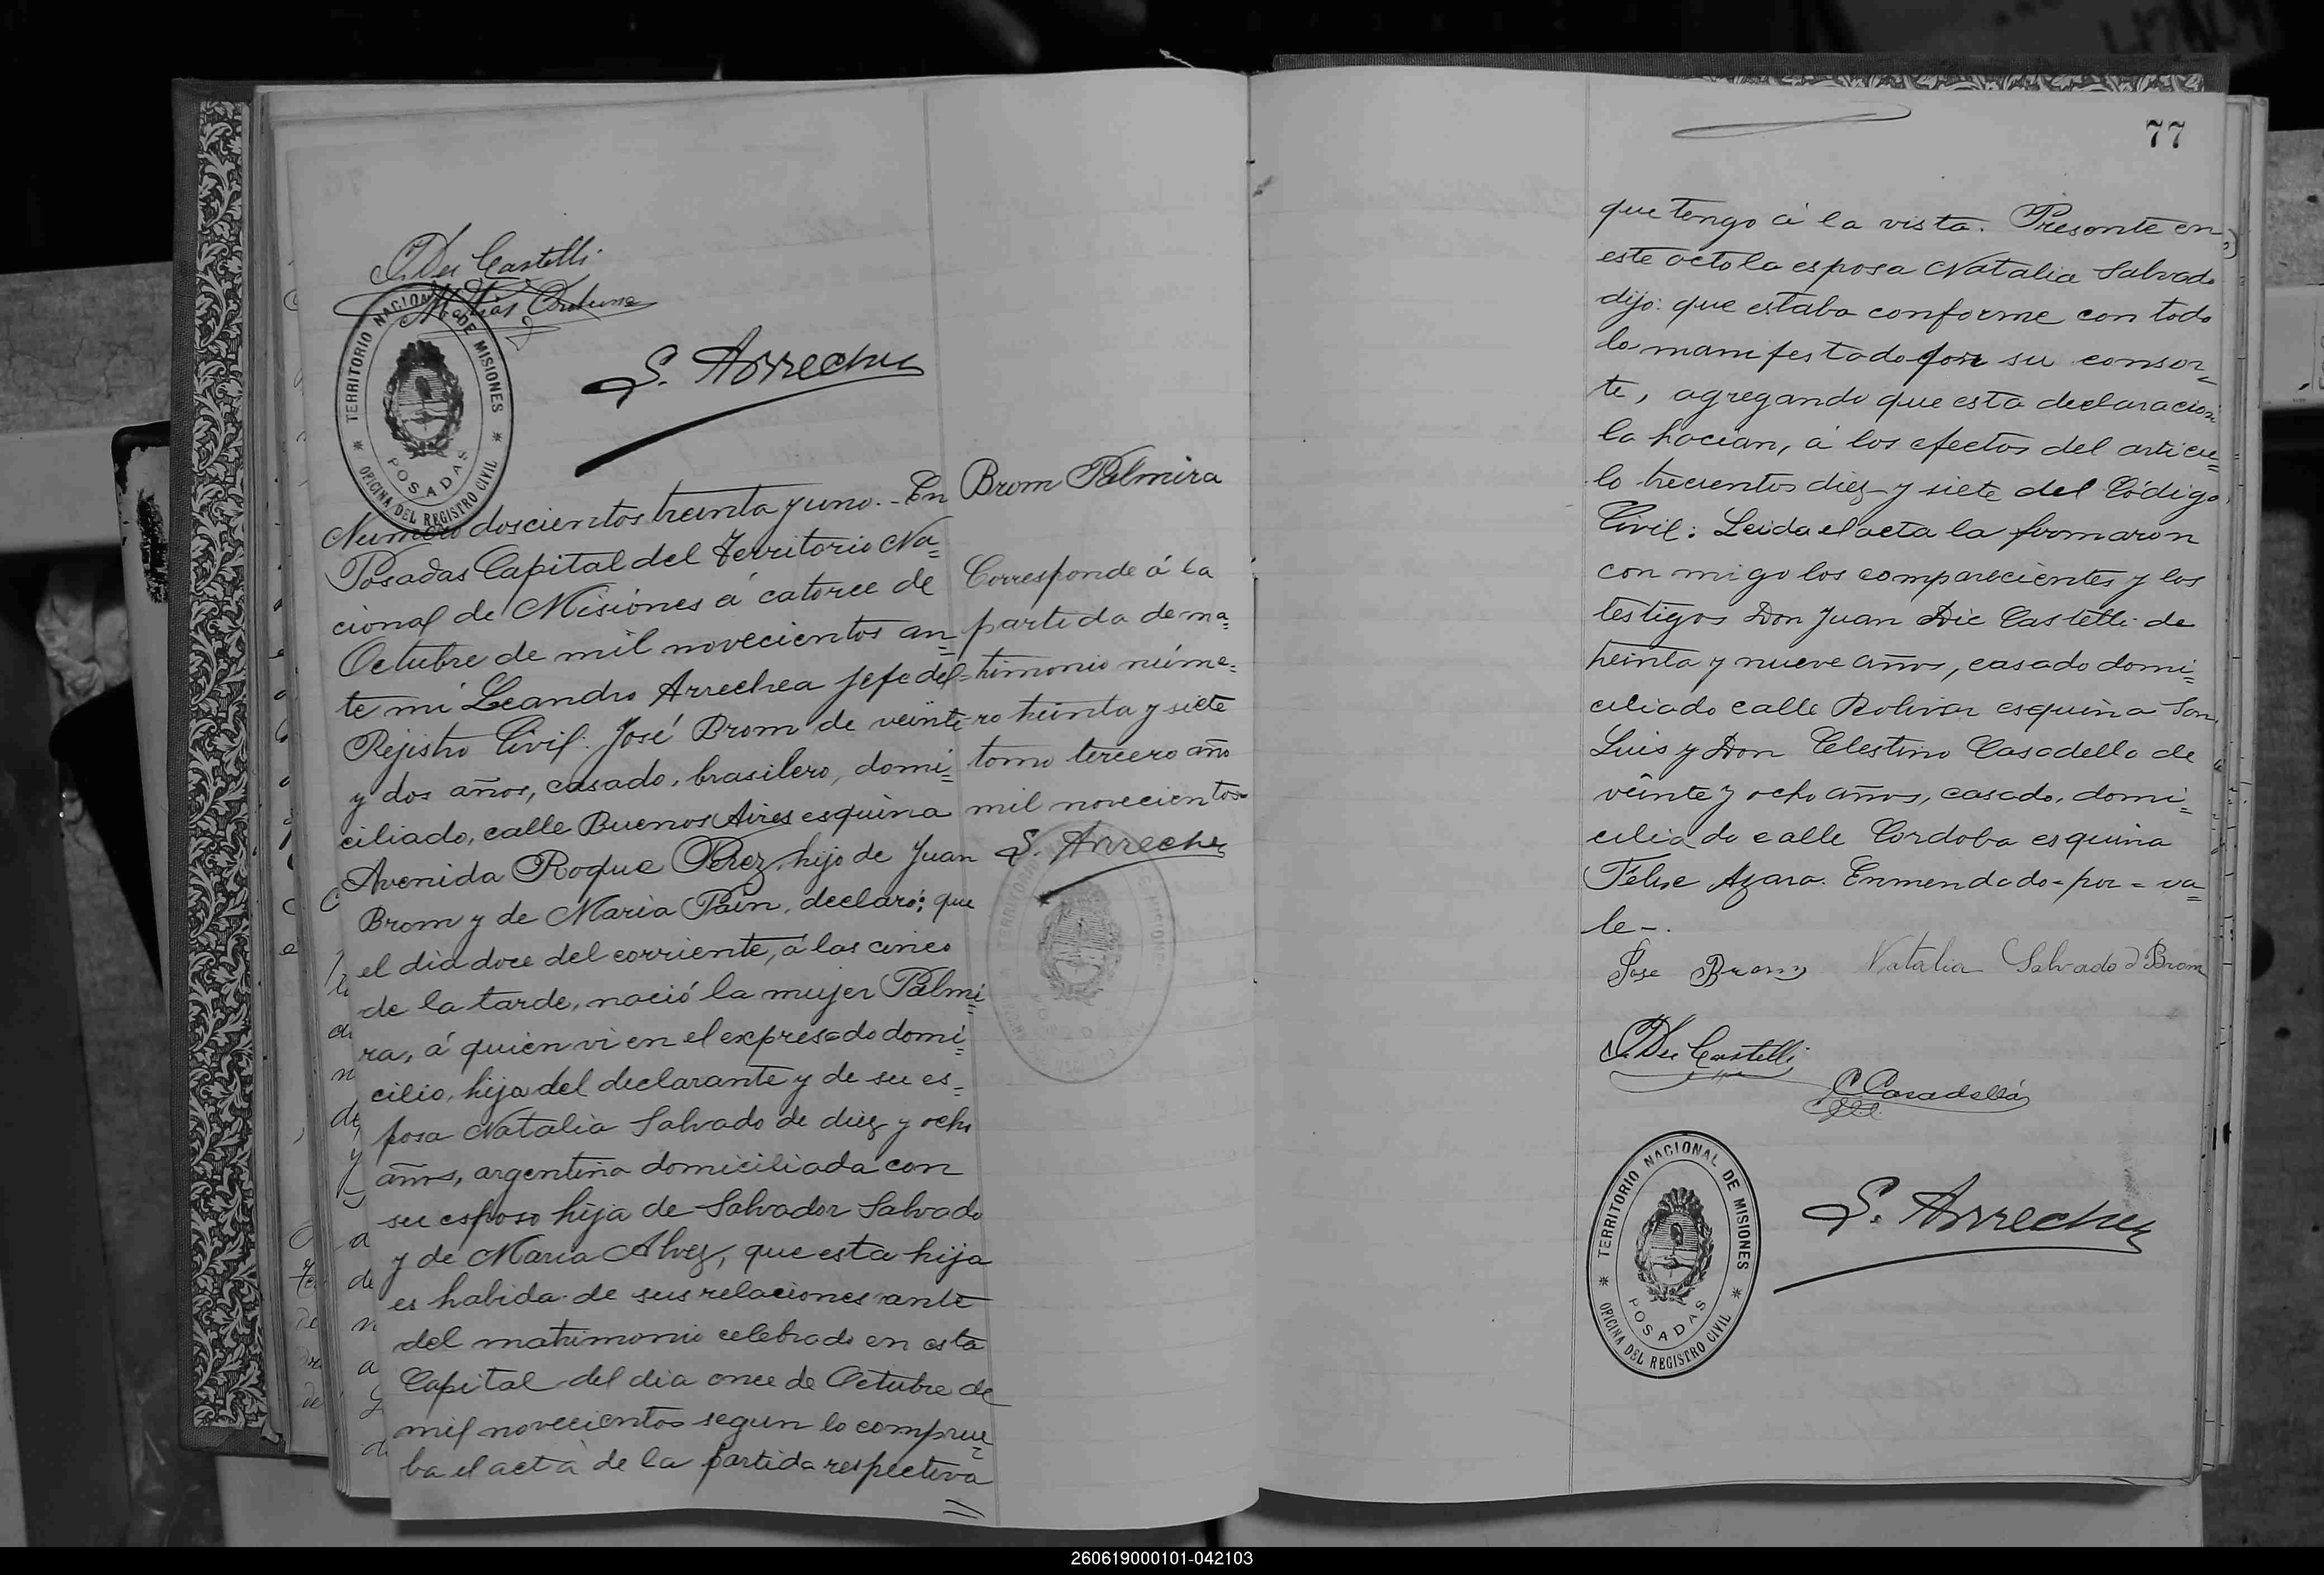 J. Dei Castelli
Matías
TERRITORIO NACIONAL DE MISIONES
POSADAS
OFICINA DEL REGISTRO CIVIL
S. Arrechea
Número doscientos treinta y uno. - En
Posadas Capital del Territorio Na=
cional de Misiones á catorce de
Octubre de mil novecientos an=
te mí Leandro Arrechea Jefe del
Rejistro Civil: José Brom de veinte
y dos años, casado, brasilero, domi=
ciliado, calle Buenos Aires esquina
Avenida Roque Perez, hijo de Juan
Brom y de Maria Pain, declaró; que
el dia doce del corriente, á las cinco
de la tarde, nació la mujer Palmi=
ra, á quien vi en el expresado domi=
cilio, hija del declarante y de su es=
posa Natalia Salvado de diez y ocho
años, argentina domiciliada con
su esposo hija de Salvador Salvado
y de Maria Alvez, que esta hija
es habida de sus relaciones ante
del matrimonio celebrado en esta
Capital del dia once de Octubre de
mil novecientos segun lo comprue=
ba el acta de la partida respectiva
Brom Palmira
Corresponde á la
partida de ma=
trimonio núme=
ro treinta y siete
tomo tercero año
mil novecientos
S. Arrechea
77
que tengo á la vista. Presente en
este acto la esposa Natalia Salvado
dijo: que estaba conforme con todo
lo manifestado por su consor=
te, agregando que esta declaracion
la hacian, á los efectos del articu=
lo trecientos diez y siete del Código
Civil: Leida el acta la firmaron
con migo los comparecientes y los
testigos Don Juan Dei Castelli de
treinta y nueve años, casado domi=
ciliado calle Bolivar esquina San
Luis y Don Celestino Casadella de
veinte y ocho años, casado, domi=
ciliado calle Cordoba esquina
Felise Azara. Enmendado = por = va=
le -.
Jose Brom Natalia Salvado d Brom
J. Dei Castelli
C. Casadellá
TERRITORIO NACIONAL DE MISIONES
POSADAS
OFICINA DEL REGISTRO CIVIL
S. Arrechea
260619000101-042103